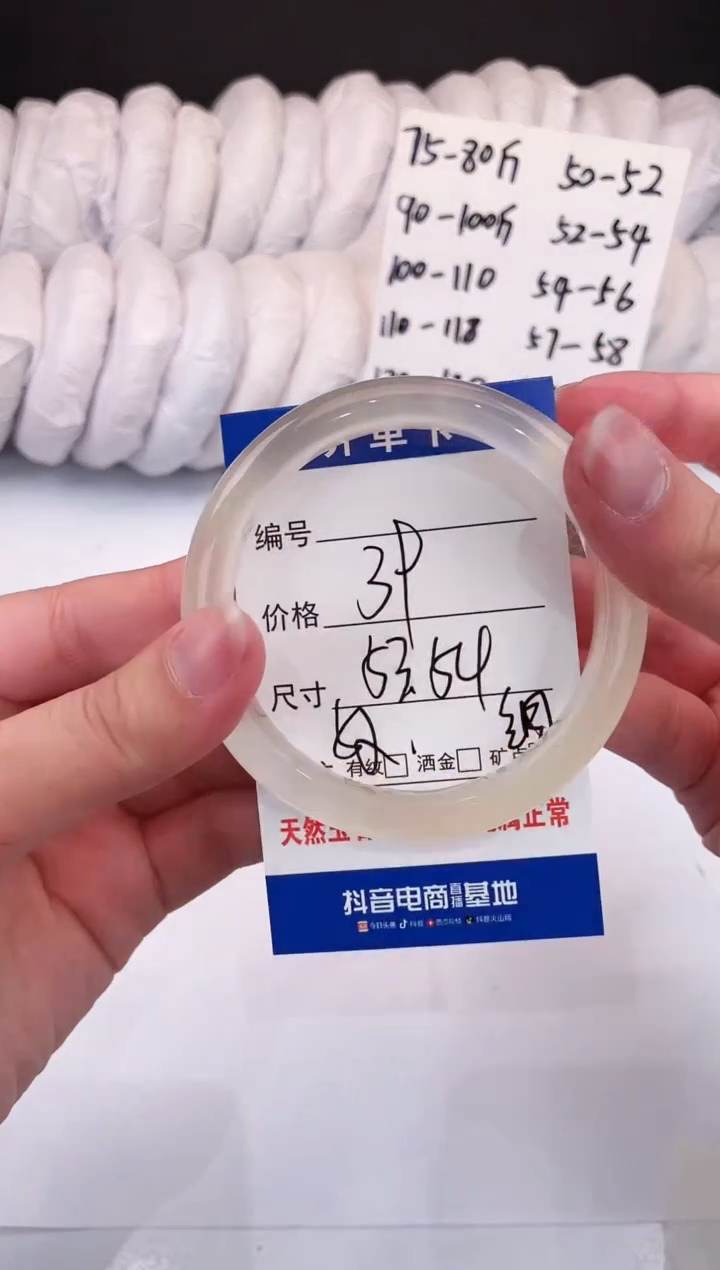 75-80斤 50-52
90-100斤 52-54
100-110 54-56
110-118 57-58
开单卡
编号
价格
尺寸 53.54
有纹□ 洒金□ 矿点
天然玉 属正常
抖音电商直播基地
今日头条 抖音 抖音火山版